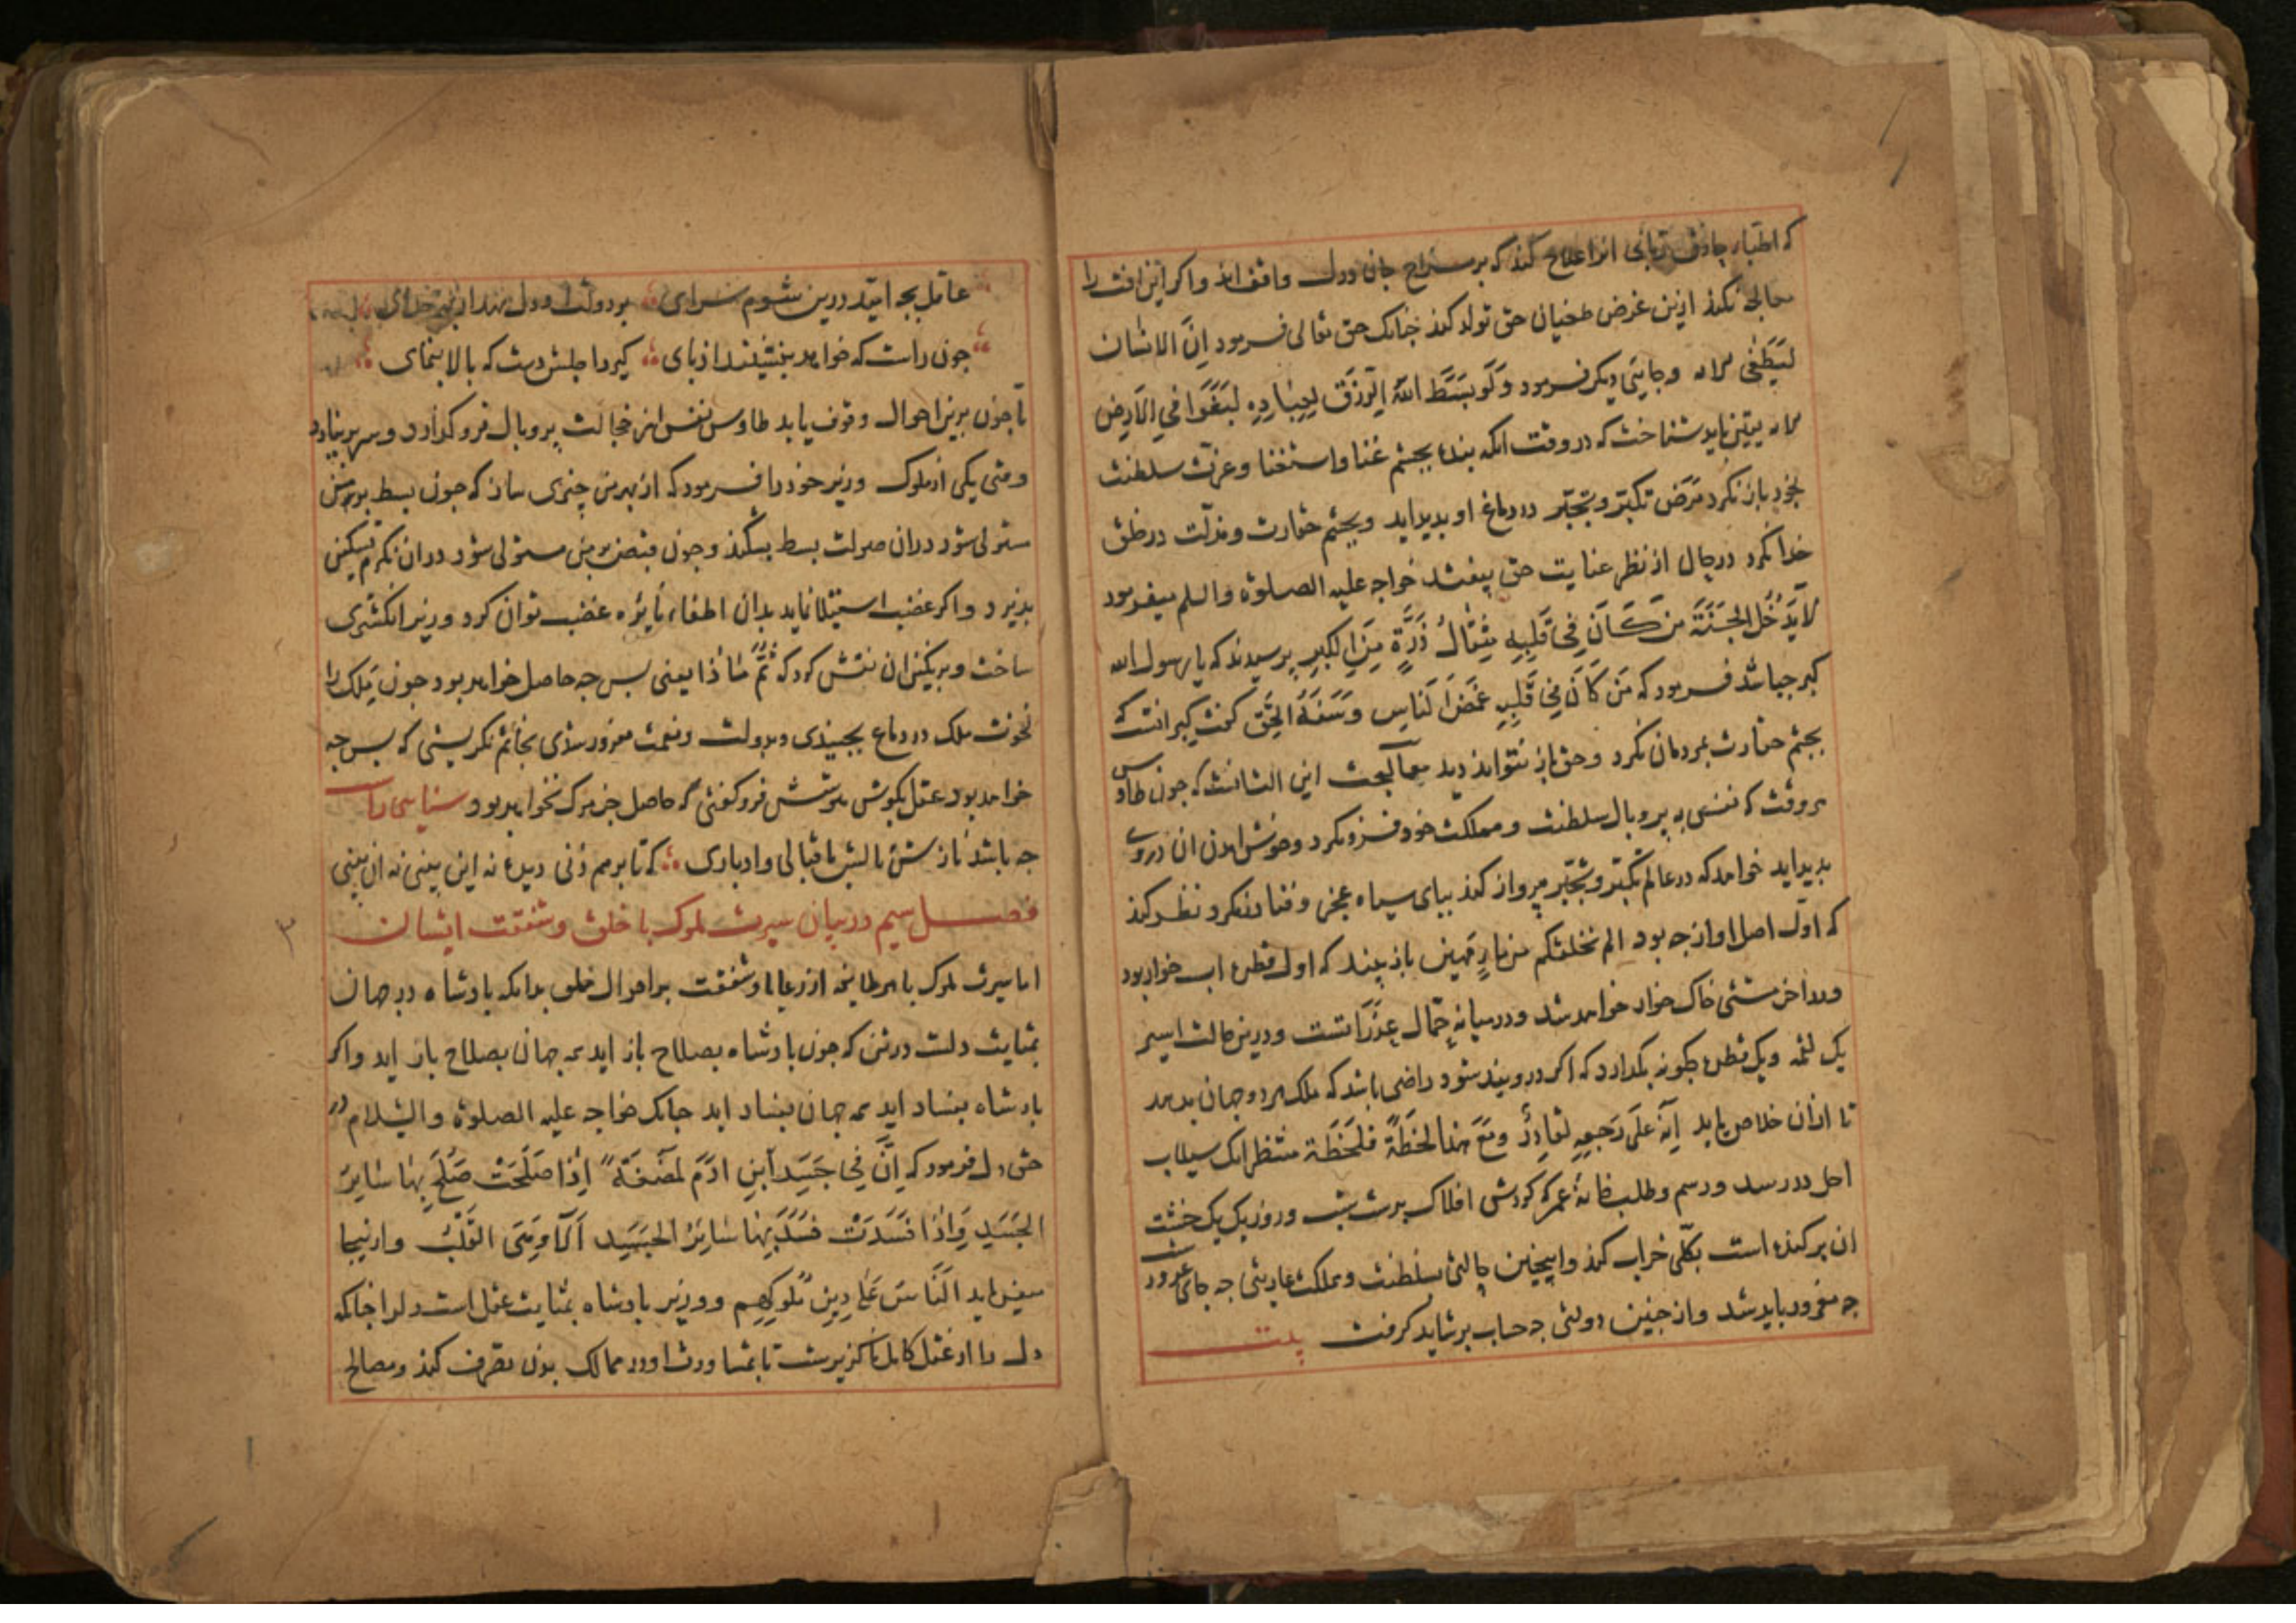 که اطباء حاذق ربانی انرا علاج کنند که بر مزاج جان و دل واقف اند واکر این افت را
معالجه نکند ازین غرض طغیان حق تولد کند جنانک حق تعالی فرمود اِنَّ الانسَانَ
لَیَطْغٰی الایه وجایی دیکر فرمود وَلَو بَسَطَ اللهُ الرِّزقَ لِعِبَادِهِ لَبَغَوا فِی الاَرضِ
الایه یقین باید شناخت که در وقت انکه بنده بجشم غنا واستغنا وعزت سلطنت
بخود باز نکرد مَرَض تکبّر وتجبّر در دماغ او بدید اید وبجشم حقارت ومذلّت در خلق
خدا نکرد در حال از نظر عنایت حق بیفتد خواجه علیه الصلوة والسلم میفرمود
لَا یَدْخُلُ الجَنَّةَ مَن کَانَ فِی قَلبِهِ مِثقَالُ ذَرَّةٍ مِنَ الکِبرِ برسیدند که یا رسول الله
کبر جباشد فرمود که مَن کَانَ فِی قَلبِهِ غَمَضَ النَّاسِ وَسَفَهَ الحَقِّ کفت کبر انست که
بجشم حقارت بمردمان نکرد وحق باز نتواند دید معالجت این انشاست که جون طاوس
هر وقت که نفس به پر وبال سلطنت ومملکت خود فرو نکرد وخوش امدن ان در وی
بدید اید خواهد که در عالم تکبّر وتجبّر پرواز کند بپای سیاه عجز وفنا در نکرد نظر کند
که اوّل اصل او از جه بود الم نخلقکم من ماءٍ مَهین باز بیند که اول قطره اب خوار بود
ودر اخر مشتی خاک خوار خواهد شد ودر میانه حَمّال عَذِرَاتست ودرین حالت اسیر
یک لقمه ویک قطره جکونه بکدارد که اکر در وبند شود راضی باشد که ملک هر دو جهان بدهد
تا ازان خلاص یابد اِنَّهُ عَلَی رَجعِهِ لَقَادِرٌ ومَعَ هذا لَحظَةً فَلَحظَة منتظر انک سیلاب
اجل در رسد ورسم وطلب خانهٔ عمر که کردش افلاک بر شب وروز یک یک خشت
ان بر کنده است بکلّی خراب کند واینجنین حالتی بسلطنت ومملکت عاریتی جه جای غرورست
جه مغرور باید شد واز جنین دولتی جه حساب بر شاید کرفت بیت
عاقل بجه امید درین شوم سرای بر دولت او دل نهد از بهر خدای
جون راست که خواهد بنشیند از بای کیرد اجلش دست که بالا بنمای
تا جون برین احوال وقوف یابد طاوس نفس از خجالت پر وبال فرو کذارد وسر بر نیارد
وقتی یکی از ملوک وزیر خود را فرمود که از بهر من جیزی ساز که جون بسط بر من
مستولی شود دران صولت بسط بشکند وجون قبض بر من مستولی شود دران نکرم تسکین
بذیرد واکر غضب استیلا نماید بدان اطفاء نایره غضب توان کرد وزیر انکشتری
ساخت وبر نکین ان نقش کرد که ثُمَّ مَاذَا یعنی بس جه حاصل خواهد بود جون مَلِک را
نخوت ملک در دماغ بجنبیدی وبدولت ونعمت مغرور شدی بخاتم نکریستی که بس جه
خواهد بود عقل بکوش هوشش فرو کفتی که حاصل جز مرک نخواهد بود سنایی راست
جه باشد نازش ونالش ز اقبالی وادباری که تا برهم زنی دیده نه این بینی نه ان بینی
فصل سیم در بیان سیرت ملوک با خلق وشفقت ایشان
اما سیرت ملوک با هر طایفه از رعایا وشفقت بر احوال خلق بدانکه بادشاه در جهان
بمثابت دلست در تن که جون بادشاه بصلاح باز اید همه جهان بصلاح باز اید واکر
بادشاه بفساد اید همه جهان بفساد اید جنانک خواجه علیه الصلوة والسّلام در
حق دل فرمود که اِنَّ فِی جَسَدِ ابنِ ادَمَ لَمُضغَةً اِذَا صَلَحَتْ صَلَحَ بِهَا سَایِرُ
الجَسَدِ وَاِذَا فَسَدَتْ فَسَدَ بِهَا سَایِرُ الجَسَدِ اَلَا وَهِیَ القَلبُ وازینجا
میفرماید اَلنَّاسُ عَلَی دِینِ مُلُوکِهِم ووزیر بادشاه بمثابت عقل است دل را جنانکه
دل را از عقل کامل ناکزیرست تا بمشاورت او در ممالک بدن تصرف کند ومصالح
۳